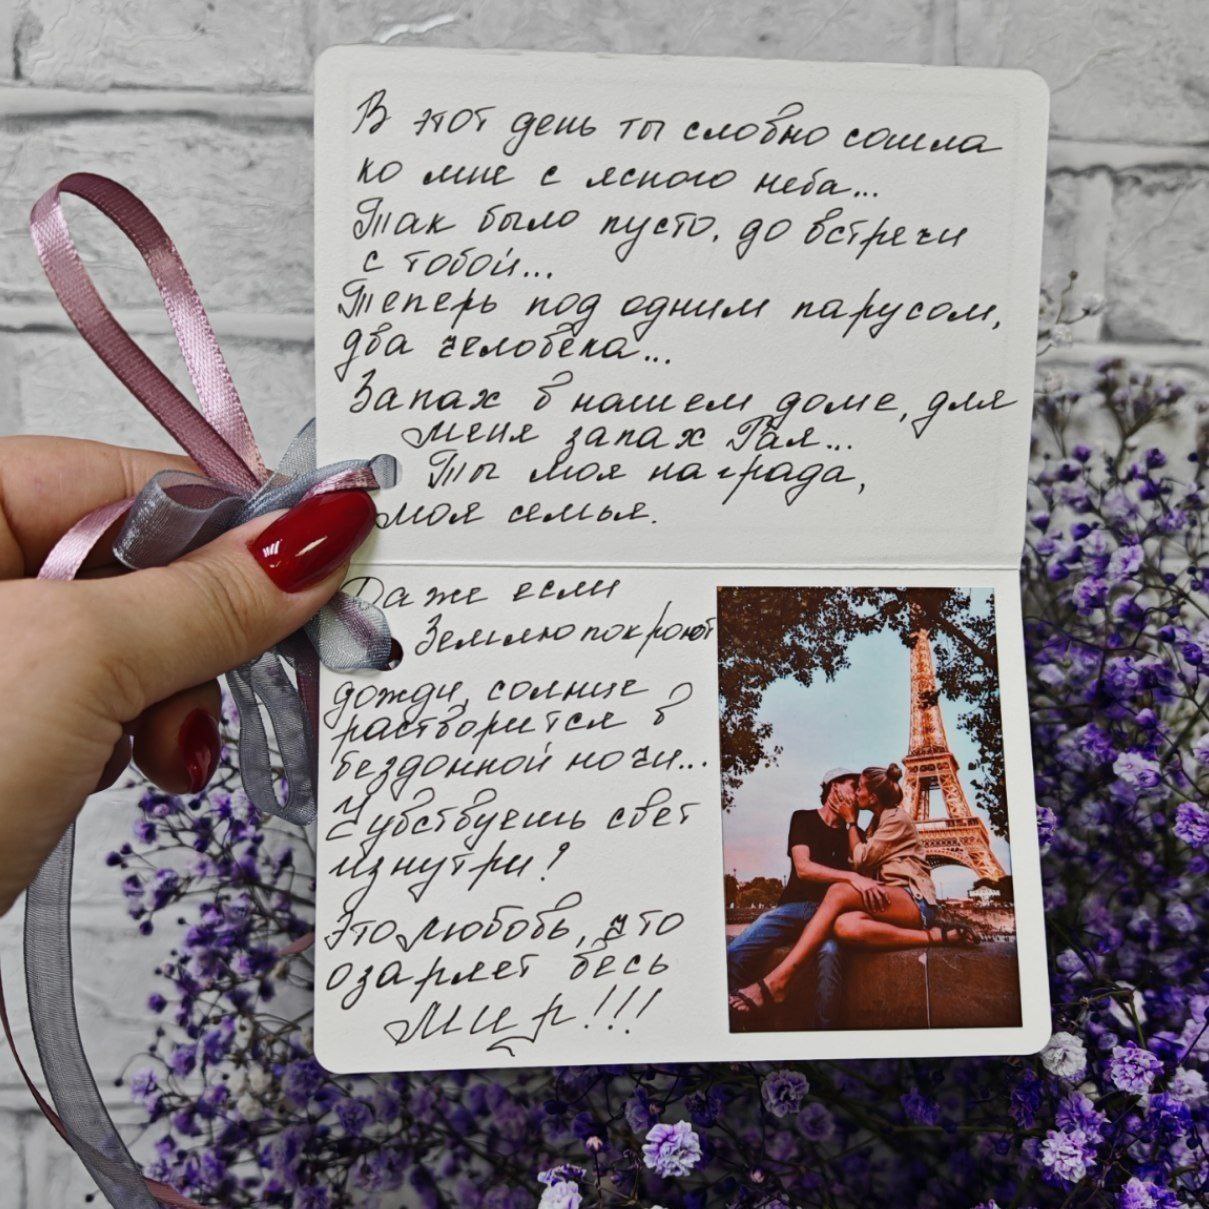 В этот день ты словно сошла
ко мне с ясного неба...
Так было пусто, до встречи
с тобой...
Теперь под одним парусом,
два человека...
Запах в нашем доме, для
меня запах Рая...
Ты моя награда,
моя семья.
Даже если
Землю покроют
дожди, солнце
растворится в
бездонной ночи...
Чувствуешь свет
изнутри?
Это любовь, что
озаряет весь
мир!!!